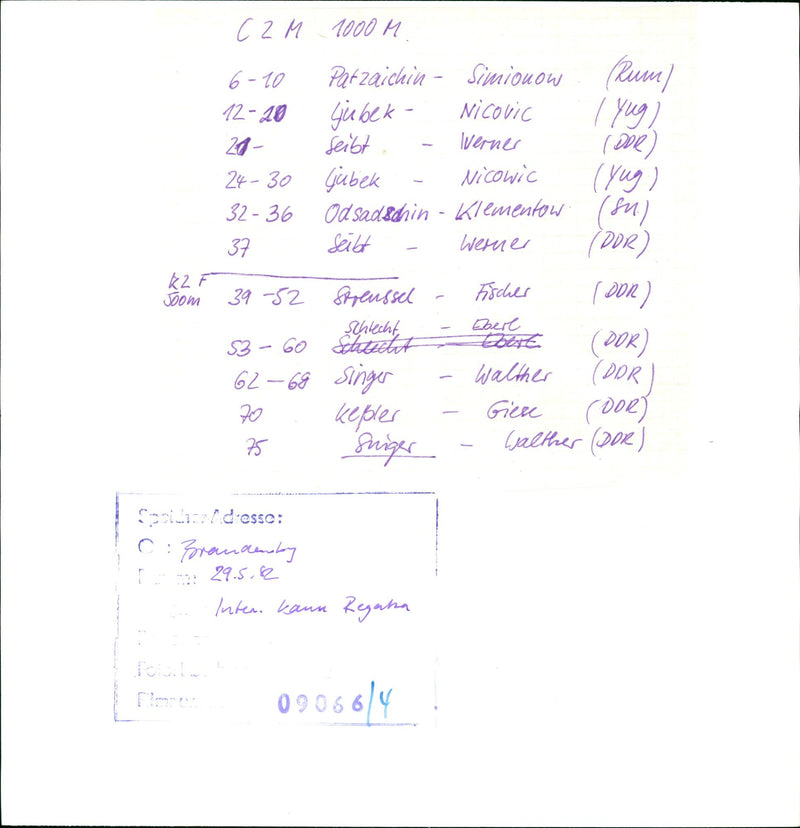 C 2 M 1000 M.
6-10 Patzaichin - Simionow (Rum)
12-20 Ljubek - Nicovic (Yug)
21- Seibt - Werner (DDR)
24-30 Ljubek - Nicowic (Yug)
32-36 Odsadschin - Klementow (SU)
37 Seibt - Werner (DDR)
K2 F
500m 39-52 Streussel - Fischer (DDR)
Schlecht - Eberl
53-60 Schlecht - Eberl (DDR)
62-68 Singer - Walther (DDR)
70 Keßler - Giese (DDR)
75 Singer - Walther (DDR)
Speicher Adresse:
O : Brandenbg
29.5.82
Inter. Kanu Regatta
09066/4